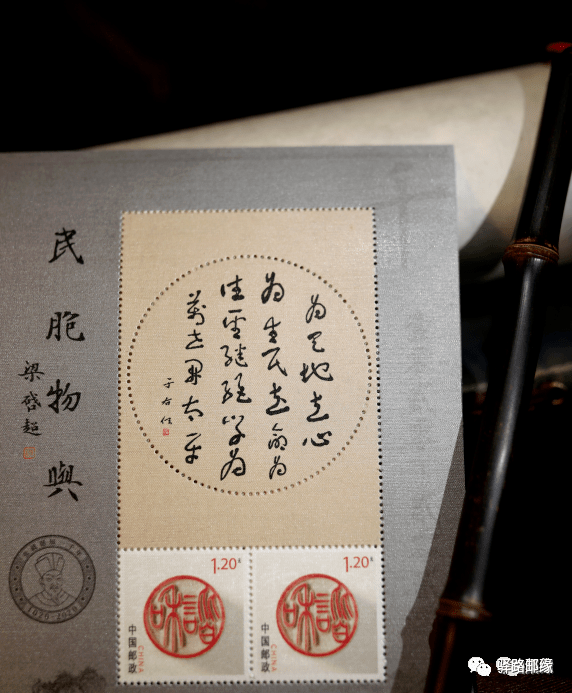 民胞物與
梁啓超
为天地立心
为生民立命为
往聖繼絕學为
萬世開太平
于右任
1.20元
諧和
中国邮政
CHINA
1.20元
諧和
中国邮政
CHINA
1020-2020
驿路邮缘